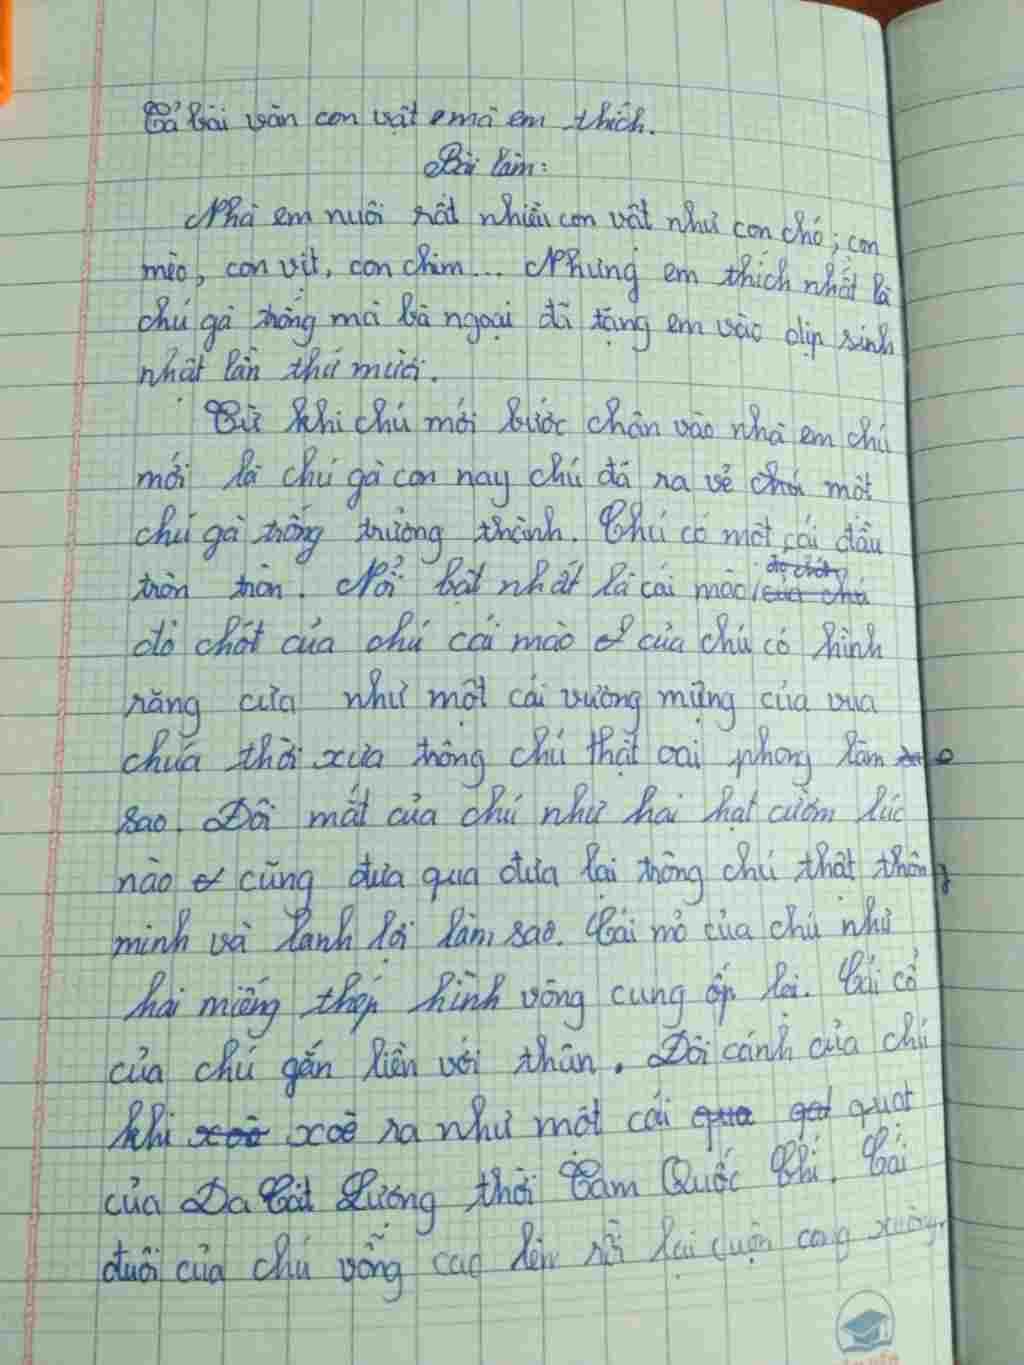 Tả bài văn con vật mà em thích.
Bài làm:
Nhà em nuôi rất nhiều con vật như con chó, con
mèo, con vịt, con chim... Nhưng em thích nhất là
chú gà trống mà bà ngoại đã tặng em vào dịp sinh
nhật lần thứ mười.
Từ khi chú mới bước chân vào nhà em chú
mới là chú gà con nay chú đã ra vẻ một
chú gà trống trưởng thành. Chú có một cái đầu
tròn tròn. Nổi bật nhất là cái mào
đỏ chót của chú cái mào của chú có hình
răng cưa như một cái vương mũng của vua
chúa thời xưa trông chú thật oai phong làm
sao. Đôi mắt của chú như hai hạt cườm lúc
nào cũng đưa qua đưa lại trông chú thật thông
minh và lanh lợi làm sao. Cái mỏ của chú như
hai miếng thép hình vòng cung ốp lại. Cái cổ
của chú gắn liền với thân. Đôi cánh của chú
khi xoè ra như một cái quạt
của Da Cát Lượng thời Tam Quốc Chí. Cái
đuôi của chú vổng cao lên rồi lại cuộn cong xuống.